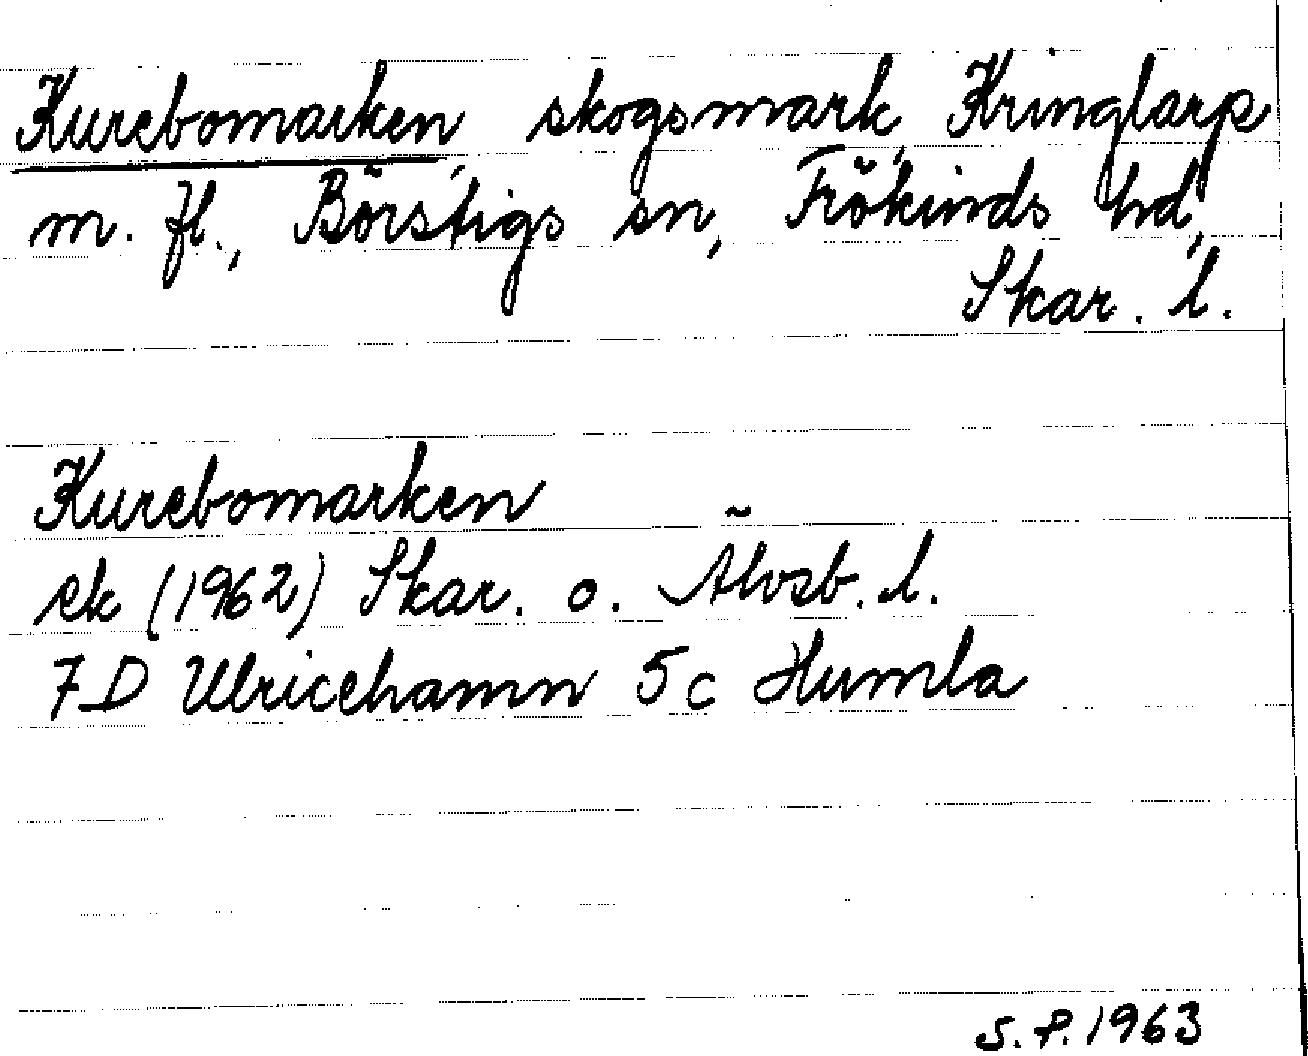 Kurebomarken, skogsmark, Kringlarp
m. fl., Börstigs sn, Frökinds hd,
Skar. l.
Kurebomarken
ek (1962) Skar. o. Älvsb. l.
7D Ulricehamn 5c Humla
S.P. 1963